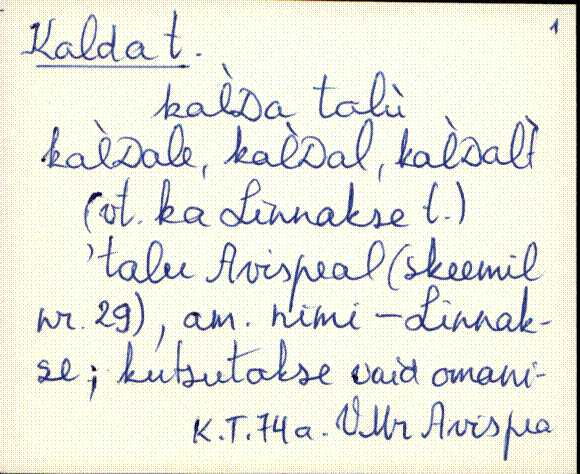 1
Kalda t.
kal̀Da talù
kal̀Dale, kal̀Dal, kal̀Dalt
(vt. ka Linnakse t.)
'talu Avispeal (skeemil
nr. 29), am. nimi – Linnak-
se; kutsutakse vaid omani-
K.T.74a. VMr Avispea